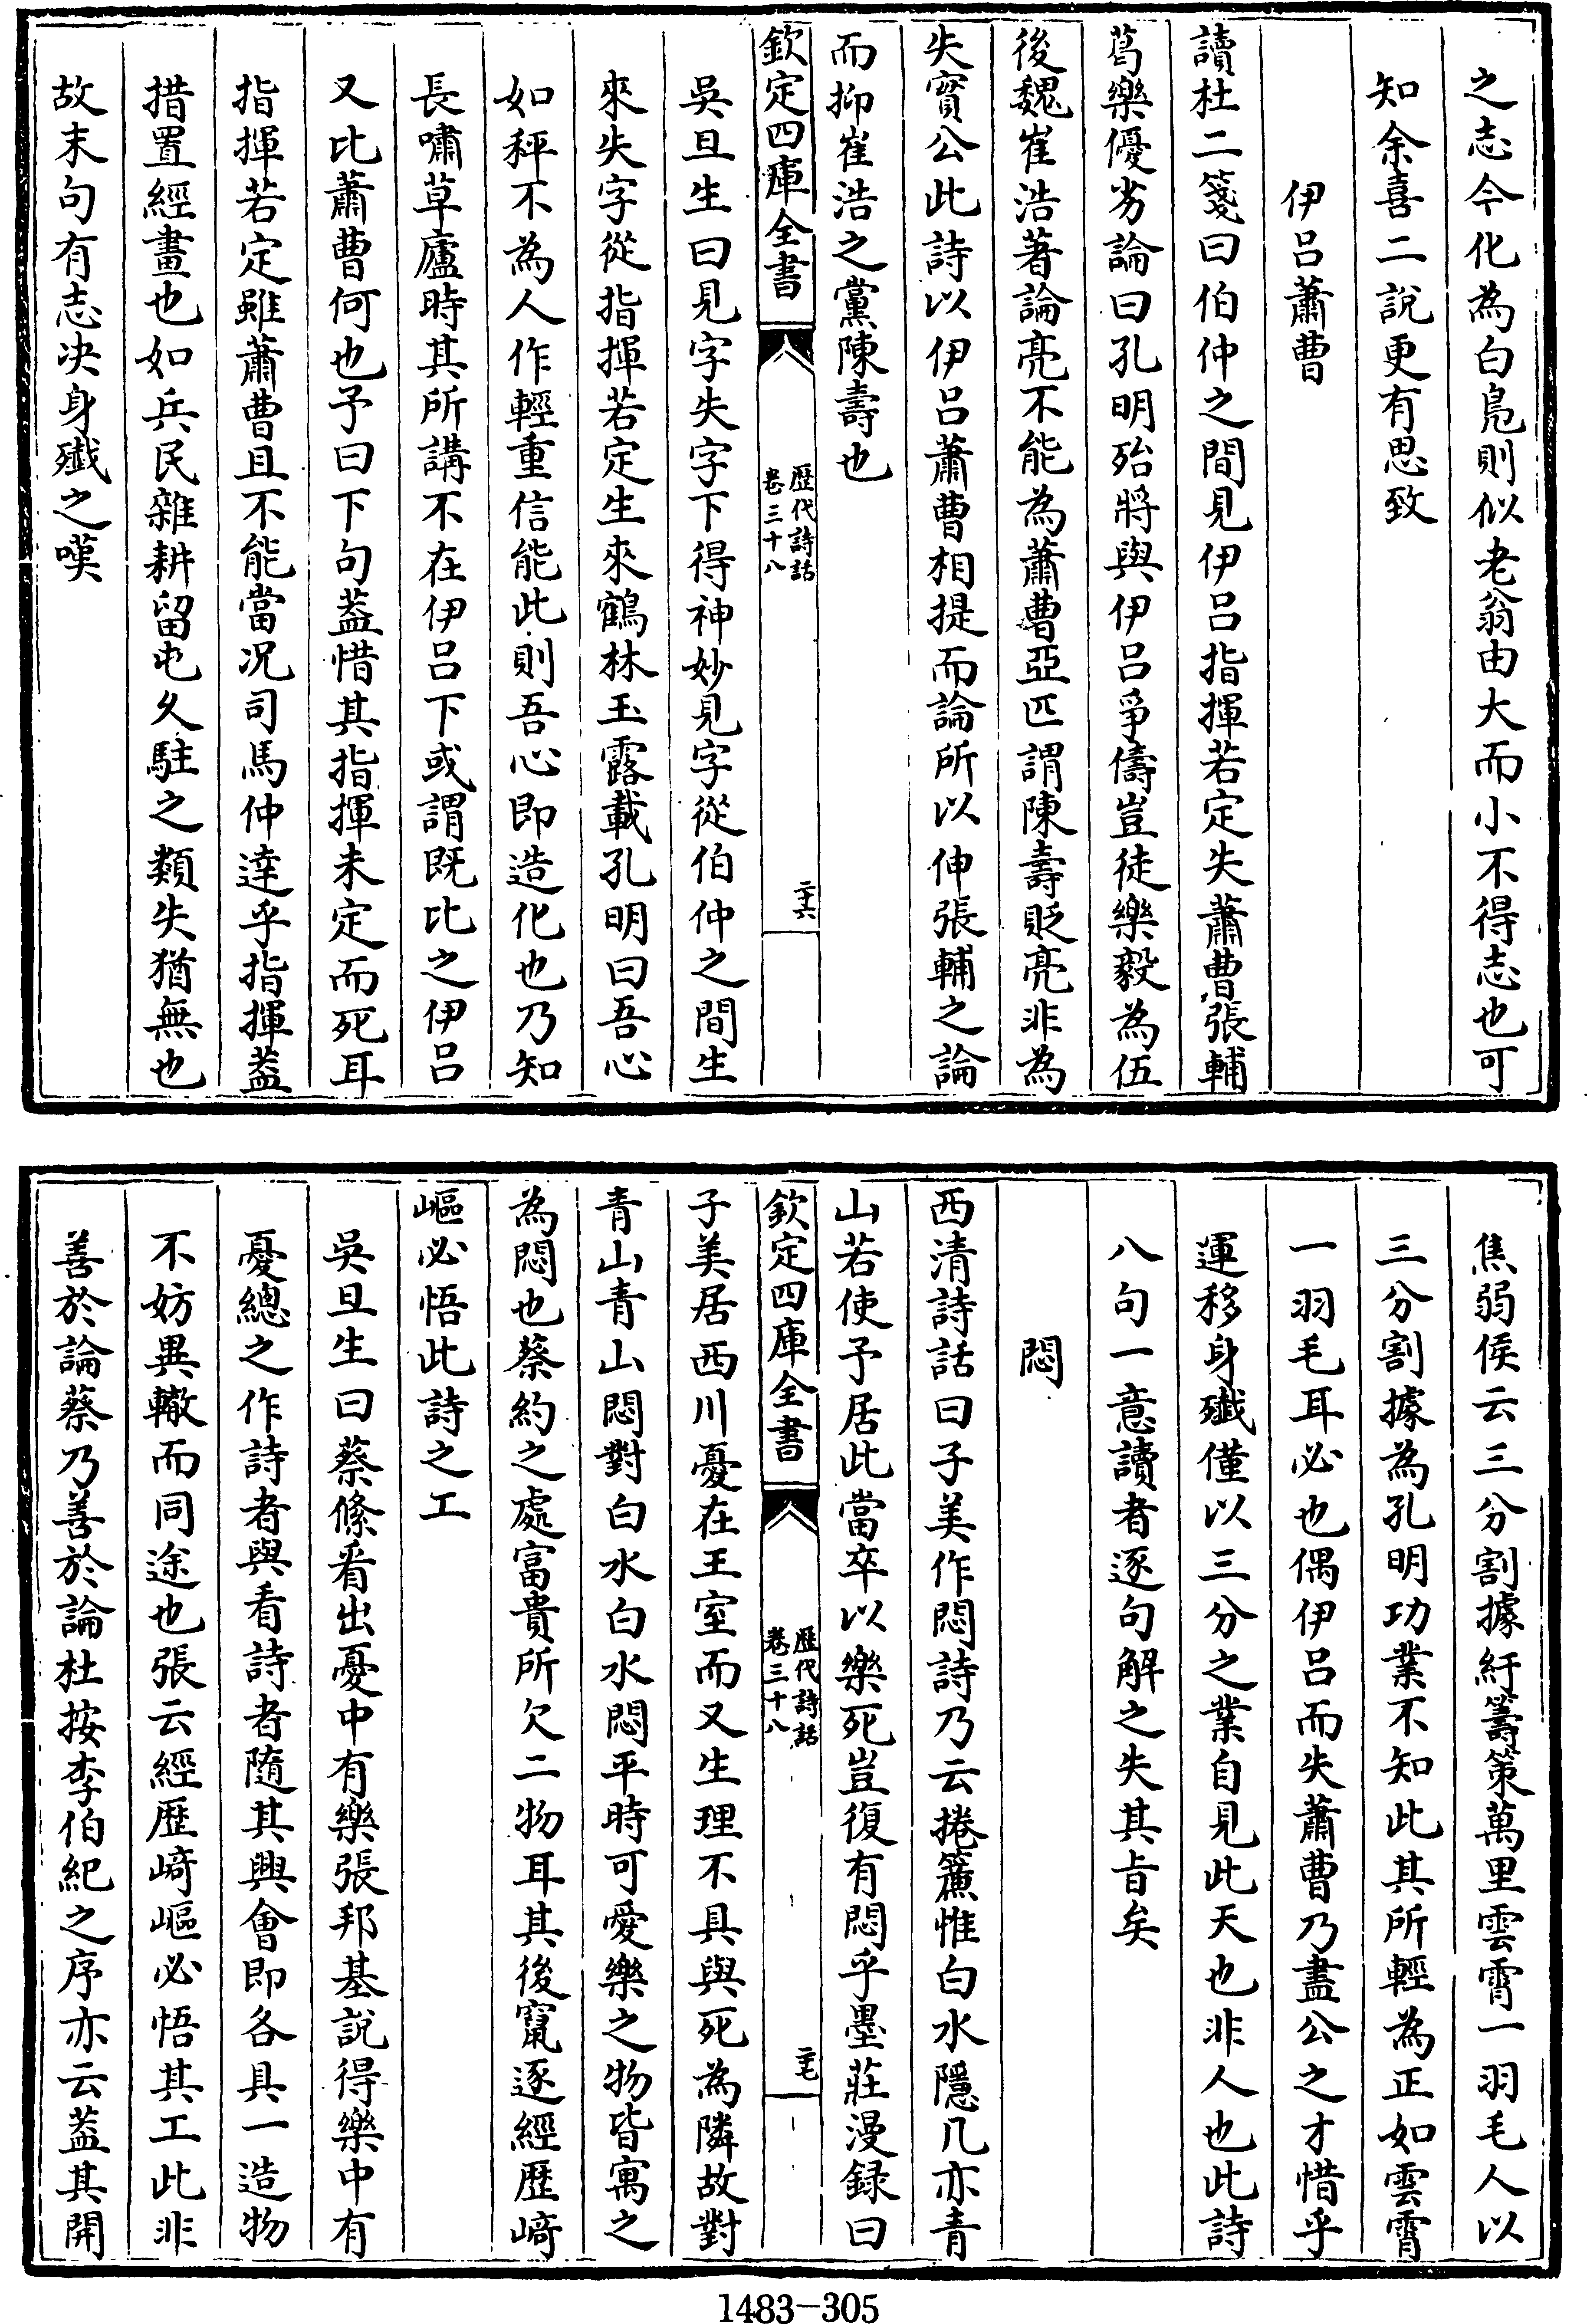 之志今化為白鳧則似老翁由大而小不得志也可
知余喜二說更有思致
伊呂蕭曹
讀杜二箋曰伯仲之間見伊呂指揮若定失蕭曹張輔
葛樂優劣論曰孔明殆將與伊呂爭儔豈徒樂毅為伍
後魏崔浩著論亮不能為蕭曹亞匹謂陳壽貶亮非為
失實公此詩以伊呂蕭曹相提而論所以伸張輔之論
而抑崔浩之黨陳壽也
欽定四庫全書
歷代詩話
卷三十八
二十六
吳旦生曰見字失字下得神妙見字從伯仲之間生
來失字從指揮若定生來鶴林玉露載孔明曰吾心
如秤不為人作輕重信能此則吾心即造化也乃知
長嘯草廬時其所講不在伊呂下或謂既比之伊呂
又比蕭曹何也予曰下句葢惜其指揮未定而死耳
指揮若定雖蕭曹且不能當况司馬仲達乎指揮葢
措置經畫也如兵民雜耕留屯久駐之類失猶無也
故末句有志决身殲之嘆
焦弱侯云三分割據紆籌策萬里雲霄一羽毛人以
三分割據為孔明功業不知此其所輕為正如雲霄
一羽毛耳必也偶伊呂而失蕭曹乃盡公之才惜乎
運移身殲僅以三分之業自見此天也非人也此詩
八句一意讀者逐句解之失其旨矣
悶
西清詩話曰子美作悶詩乃云捲簾惟白水隱几亦青
山若使予居此當卒以樂死豈復有悶乎墨莊漫録曰
欽定四庫全書
歷代詩話
卷三十八
二十七
子美居西川憂在王室而又生理不具與死為隣故對
青山青山悶對白水白水悶平時可愛樂之物皆寓之
為悶也蔡約之處富貴所欠二物耳其後竄逐經歷崎
嶇必悟此詩之工
吳旦生曰蔡絛看出憂中有樂張邦基說得樂中有
憂總之作詩者與看詩者隨其興會即各具一造物
不妨異轍而同途也張云經歷崎嶇必悟其工此非
善於論蔡乃善於論杜按李伯紀之序亦云葢其開
1483-305